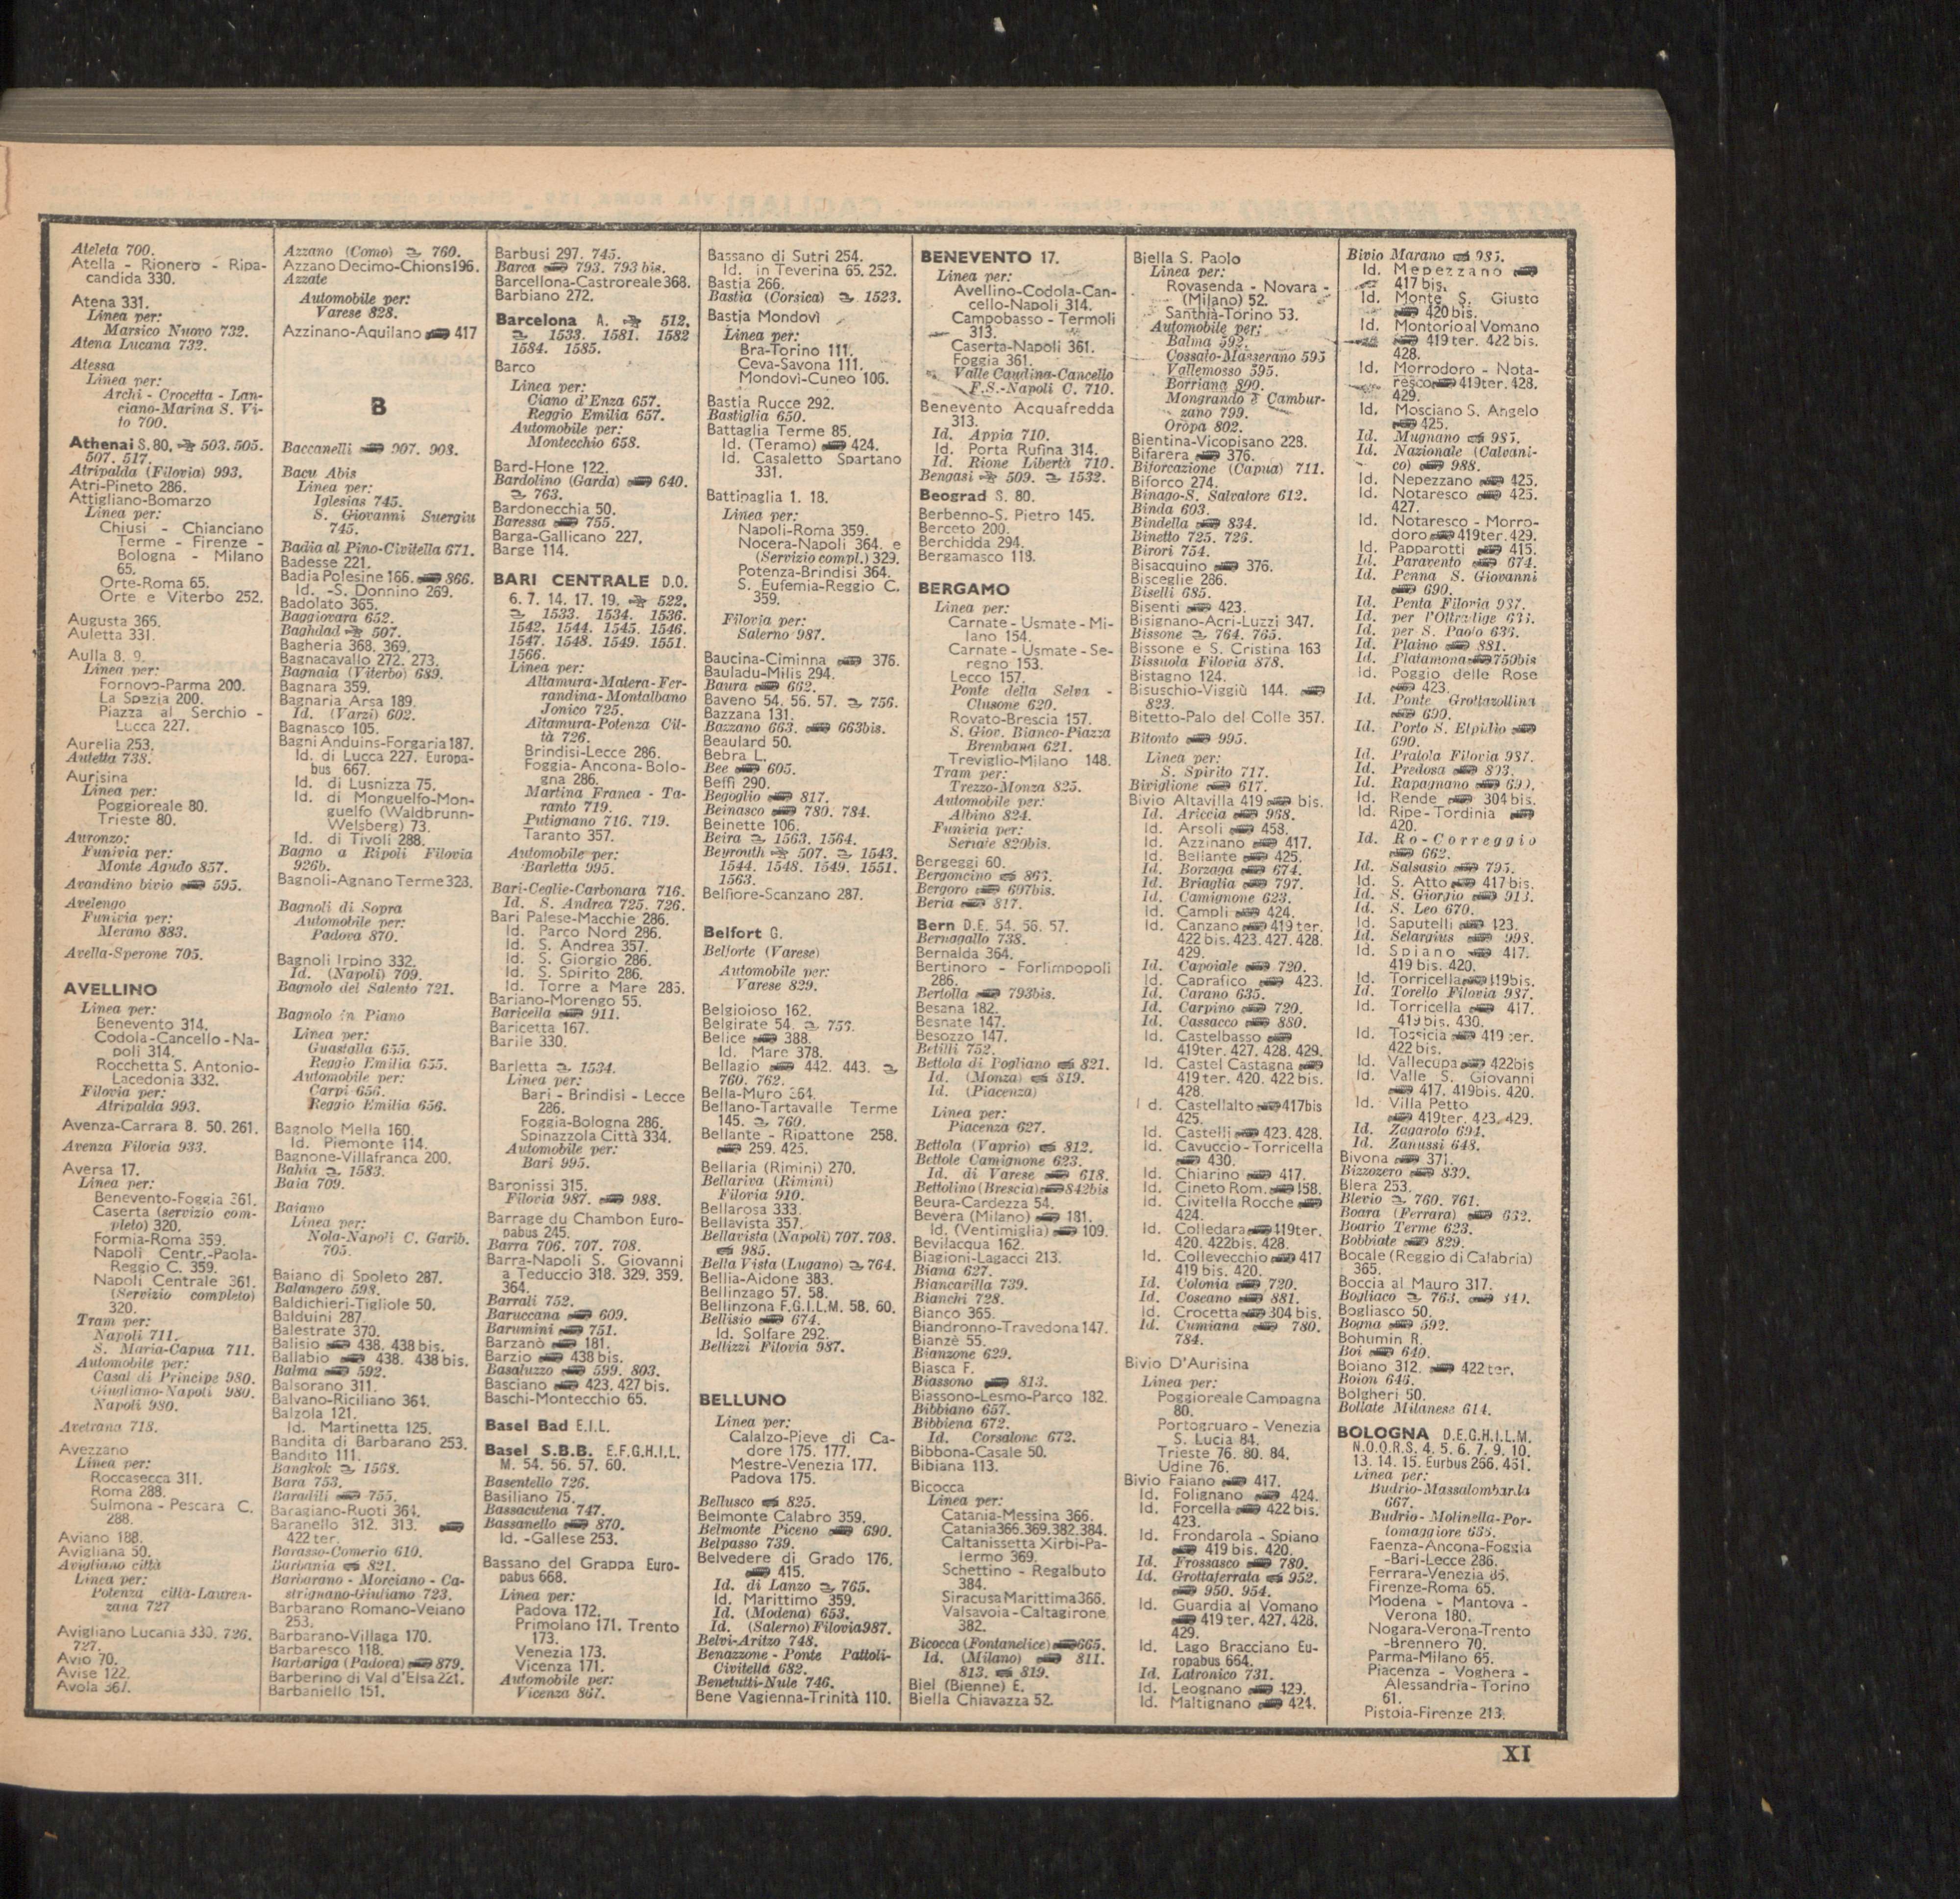 Ateleta 700.
Atella - Rionero - Ripa-
candida 330.
Atena 331.
Linea per:
Marsico Nuovo 732.
Atena Lucana 732.
Atessa
Linea per:
Archi - Crocetta - Lan-
ciano-Marina S. Vi-
to 700.
Athenai S. 80. 503. 505.
507. 517.
Atripalda (Filovia) 993.
Atri-Pineto 286.
Attigliano-Bomarzo
Linea per:
Chiusi - Chianciano
Terme - Firenze -
Bologna - Milano
65.
Orte-Roma 65.
Orte e Viterbo 252.
Augusta 365.
Auletta 331.
Aulla 8. 9.
Linea per:
Fornovo-Parma 200.
La Spezia 200.
Piazza al Serchio -
Lucca 227.
Aurelia 253.
Autetta 738.
Aurisina
Linea per:
Poggioreale 80.
Trieste 80.
Auronzo:
Funivia per:
Monte Agudo 857.
Avandino bivio 595.
Avelengo
Funivia per:
Merano 883.
Avella-Sperone 705.
AVELLINO
Linea per:
Benevento 314.
Codola-Cancello-Na-
poli 314.
Rocchetta S. Antonio-
Lacedonia 332.
Filovia per:
Atripalda 993.
Avenza-Carrara 8. 50. 261.
Avenza Filovia 933.
Aversa 17.
Linea per:
Benevento-Foggia 361.
Caserta (servizio com-
pleto) 320.
Formia-Roma 359.
Napoli Centr.-Paola-
Reggio C. 359.
Napoli Centrale 361.
(Servizio completo)
320.
Tram per:
Napoli 711.
S. Maria-Capua 711.
Automobile per:
Casal di Principe 980.
Giugliano-Napoli 980.
Napoli 980.
Avetrana 718.
Avezzano
Linea per:
Roccasecca 311.
Roma 288.
Sulmona - Pescara C.
288.
Aviano 188.
Avigliana 50.
Avigliano città
Linea per:
Potenza città-Lauren-
zana 727
Avigliano Lucania 330. 726.
727.
Avio 70.
Avise 122.
Avola 367.
Azzano (Como) 760.
Azzano Decimo-Chions 196.
Azzate
Automobile per:
Varese 828.
Azzinano-Aquilano 417
B
Baccanelli 907. 908.
Bacu Abis
Linea per:
Iglesias 745.
S. Giovanni Suergiu
745.
Badia al Pino-Civitella 671.
Badesse 221.
Badia Polesine 166. 866.
Id. -S. Donnino 269.
Badolato 365.
Baggiovara 652.
Baghdad 507.
Bagheria 368. 369.
Bagnacavallo 272. 273.
Bagnaia (Viterbo) 689.
Bagnara 359.
Bagnaria Arsa 189.
Id. (Varzi) 602.
Bagnasco 105.
Bagni Anduins-Forgaria 187.
Id. di Lucca 227. Europa-
bus 667.
Id. di Lusnizza 75.
Id. di Monguelfo-Mon-
guelfo (Waldbrunn-
Welsberg) 73.
Id. di Tivoli 288.
Bagno a Ripoli Filovia
926b.
Bagnoli-Agnano Terme 323.
Bagnoli di Sopra
Automobile per:
Padova 870.
Bagnoli Irpino 332.
Id. (Napoli) 709.
Bagnolo del Salento 721.
Bagnolo in Piano
Linea per:
Guastalla 655.
Reggio Emilia 655.
Automobile per:
Carpi 656.
Reggio Emilia 656.
Bagnolo Mella 160.
Id. Piemonte 114.
Bagnone-Villafranca 200.
Bahia 1583.
Baia 709.
Baiano
Linea per:
Nola-Napoli C. Garib.
705.
Baiano di Spoleto 287.
Balangero 598.
Baldichieri-Tigliole 50.
Balduini 287
Balestrate 370.
Balisio 438. 438 bis.
Ballabio 438. 438 bis.
Balma 592.
Balsorano 311.
Balvano-Riciliano 364.
Balzola 121.
Id. Martinetta 125.
Bandita di Barbarano 253.
Bandito 111.
Bangkok 1568.
Bara 753.
Baradili 755.
Baragiano-Ruoti 364.
Baranello 312. 313.
422 ter.
Barasso-Comerio 610.
Barbania 821.
Barbarano - Morciano - Ca-
strignano-Giuliano 723.
Barbarano Romano-Veiano
253.
Barbarano-Villaga 170.
Barbaresco 118.
Barbariga (Padova) 879.
Barberino di Val d'Elsa 221.
Barbaniello 151.
Barbusi 297. 745.
Barca 793. 793 bis.
Barcellona-Castroreale 368.
Barbiano 272.
Barcelona A. 512.
1533. 1581. 1582
1584. 1585.
Barco
Linea per:
Ciano d'Enza 657.
Reggio Emilia 657.
Automobile per:
Montecchio 658.
Bard-Hone 122.
Bardolino (Garda) 640.
763.
Bardonecchia 50.
Baressa 755.
Barga-Gallicano 227.
Barge 114.
BARI CENTRALE D.O.
6. 7. 14. 17. 19. 522.
1533. 1534. 1536.
1542. 1544. 1545. 1546.
1547. 1548. 1549. 1551.
1566.
Linea per:
Altamura-Matera-Fer-
randina-Montalbano
Jonico 725.
Altamura-Potenza Cit-
tà 726.
Brindisi-Lecce 286.
Foggia-Ancona-Bolo-
gna 286.
Martina Franca - Ta-
ranto 719.
Putignano 716. 719.
Taranto 357.
Automobile per:
Barletta 995.
Bari-Ceglie-Carbonara 716.
Id. S. Andrea 725. 726.
Bari Palese-Macchie 286.
Id. Parco Nord 286.
Id. S. Andrea 357.
Id. S. Giorgio 286.
Id. S. Spirito 286.
Id. Torre a Mare 286.
Bariano-Morengo 55.
Baricella 911.
Baricetta 167.
Barile 330.
Barletta 1534.
Linea per:
Bari - Brindisi - Lecce
286.
Foggia-Bologna 286.
Spinazzola Città 334.
Automobile per:
Bari 995.
Baronissi 315.
Filovia 987. 988.
Barrage du Chambon Euro-
pabus 245.
Barra 706. 707. 708.
Barra-Napoli S. Giovanni
a Teduccio 318. 329. 359.
364.
Barrali 752.
Baruccana 609.
Barumini 751.
Barzanò 181.
Barzio 438 bis.
Basaluzzo 599. 803.
Basciano 423. 427 bis.
Baschi-Montecchio 65.
Basel Bad E.I.L.
Basel S.B.B. E.F.G.H.I.L.
M. 54. 56. 57. 60.
Basentello 726.
Basiliano 75.
Bassacutena 747.
Bassanello 870.
Id. -Gallese 253.
Bassano del Grappa Euro-
pabus 668.
Linea per:
Padova 172.
Primolano 171. Trento
173.
Venezia 173.
Vicenza 171.
Automobile per:
Vicenza 867.
Bassano di Sutri 254.
Id. in Teverina 65. 252.
Bastia 266.
Bastia (Corsica) 1523.
Bastia Mondovì
Linea per:
Bra-Torino 111.
Ceva-Savona 111.
Mondovì-Cuneo 106.
Bastia Rucce 292.
Bastiglia 650.
Battaglia Terme 85.
Id. (Teramo) 424.
Id. Casaletto Spartano
331.
Battipaglia 1. 18.
Linea per:
Napoli-Roma 359.
Nocera-Napoli 364. e
(Servizio compl.) 329.
Potenza-Brindisi 364.
S. Eufemia-Reggio C.
359.
Filovia per:
Salerno 987.
Baucina-Ciminna 376.
Bauladu-Milis 294.
Baura 662.
Baveno 54. 56. 57. 756.
Bazzana 131.
Bazzano 663. 663bis.
Beaulard 50.
Bebra L.
Bee 605.
Beffi 290.
Begoglio 817.
Beinasco 780. 784.
Beinette 106.
Beira 1563. 1564.
Beyrouth 507. 1543.
1544. 1548. 1549. 1551.
1563.
Belfiore-Scanzano 287.
Belfort G.
Belforte (Varese)
Automobile per:
Varese 829.
Belgioioso 162.
Belgirate 54. 756.
Belice 388.
Id. Mare 378.
Bellagio 442. 443.
760. 762.
Bella-Muro 364.
Bellano-Tartavalle Terme
145. 760.
Bellante - Ripattone 258.
259. 425.
Bellaria (Rimini) 270.
Bellariva (Rimini)
Filovia 910.
Bellarosa 333.
Bellavista 357.
Bellavista (Napoli) 707. 708.
985.
Bella Vista (Lugano) 764.
Bellia-Aidone 383.
Bellinzago 57. 58.
Bellinzona F.G.I.L.M. 58. 60.
Bellisio 674.
Id. Solfare 292.
Bellizzi Filovia 987.
BELLUNO
Linea per:
Calalzo-Pieve di Ca-
dore 175. 177.
Mestre-Venezia 177.
Padova 175.
Bellusco 825.
Belmonte Calabro 359.
Belmonte Piceno 690.
Belpasso 739.
Belvedere di Grado 176.
415.
Id. di Lanzo 765.
Id. Marittimo 359.
Id. (Modena) 653.
Id. (Salerno) Filovia 987.
Belvi-Aritzo 748.
Benazzone - Ponte Pattoli-
Civitella 682.
Benetutti-Nule 746.
Bene Vagienna-Trinità 110.
BENEVENTO 17.
Linea per:
Avellino-Codola-Can-
cello-Napoli 314.
Campobasso - Termoli
313.
Caserta-Napoli 361.
Foggia 361.
Valle Caudina-Cancello
F.S.-Napoli C. 710.
Benevento Acquafredda
313.
Id. Appia 710.
Id. Porta Rufina 314.
Id. Rione Libertà 710.
Bengasi 509. 1532.
Beograd S. 80.
Berbenno-S. Pietro 145.
Berceto 200.
Berchidda 294.
Bergamasco 118.
BERGAMO
Linea per:
Carnate - Usmate - Mi-
lano 154.
Carnate - Usmate - Se-
regno 153.
Lecco 157.
Ponte della Selva -
Clusone 620.
Rovato-Brescia 157.
S. Giov. Bianco-Piazza
Brembana 621.
Treviglio-Milano 148.
Tram per:
Trezzo-Monza 825.
Automobile per:
Albino 824.
Funivia per:
Seriate 820bis.
Bergeggi 60.
Bergoncino 863.
Bergoro 697bis.
Beria 817.
Bern D.E. 54. 56. 57.
Bernagallo 738.
Bernalda 364.
Bertinoro - Forlimpopoli
286.
Bertolla 793bis.
Besana 182.
Besnate 147.
Besozzo 147.
Betilli 752.
Bettola di Pogliano 821.
Id. (Monza) 819.
Id. (Piacenza)
Linea per:
Piacenza 627.
Bettola (Vaprio) 812.
Bettole Camignone 623.
Id. di Varese 618.
Bettolino (Brescia) 842bis
Beura-Cardezza 54.
Bevera (Milano) 181.
Id. (Ventimiglia) 109.
Bevilacqua 162.
Biagioni-Lagacci 213.
Biana 627.
Biancavilla 739.
Bianchi 728.
Bianco 365.
Biandronno-Travedona 147.
Bianzè 55.
Bianzone 629.
Biasca F.
Biassono 813.
Biassono-Lesmo-Parco 182.
Bibbiano 657.
Bibbiena 672.
Id. Corsalone 672.
Bibbona-Casale 50.
Bibiana 113.
Bicocca
Linea per:
Catania-Messina 366.
Catania 366. 369. 382. 384.
Caltanissetta Xirbi-Pa-
lermo 369.
Schettino - Regalbuto
384.
Siracusa Marittima 366.
Valsavoia-Caltagirone
382.
Bicocca (Fontanelice) 665.
Id. (Milano) 811.
813. 819.
Biel (Bienne) E.
Biella Chiavazza 52.
Biella S. Paolo
Linea per:
Rovasenda - Novara -
(Milano) 52.
Santhià-Torino 53.
Automobile per:
Balma 592.
Cossato-Masserano 595
Vallemosso 595.
Borriana 890.
Mongrando e Cambur-
zano 799.
Oropa 802.
Bientina-Vicopisano 228.
Bifarera 376.
Biforcazione (Capua) 711.
Biforco 274.
Binago-S. Salvatore 612.
Binda 603.
Bindella 834.
Binetto 725. 726.
Birori 754.
Bisacquino 376.
Bisceglie 286.
Biselli 685.
Bisenti 423.
Bisignano-Acri-Luzzi 347.
Bissone 764. 765.
Bissone e S. Cristina 163
Bissuola Filovia 878.
Bistagno 124.
Bisuschio-Viggiù 144.
823.
Bitetto-Palo del Colle 357.
Bitonto 995.
Linea per:
S. Spirito 717.
Biviglione 617.
Bivio Altavilla 419 bis.
Id. Ariccia 968.
Id. Arsoli 458.
Id. Azzinano 417.
Id. Bellante 425.
Id. Borzaga 674.
Id. Briaglia 797.
Id. Camignone 623.
Id. Campli 424.
Id. Canzano 419 ter.
422 bis. 423. 427. 428.
429.
Id. Capoiale 720.
Id. Caprafico 423.
Id. Carano 635.
Id. Carpino 720.
Id. Cassacco 880.
Id. Castelbasso
419ter. 427. 428. 429.
Id. Castel Castagna
419 ter. 420. 422 bis.
428.
Id. Castellalto 417bis
425.
Id. Castelli 423. 428.
Id. Cavuccio-Torricella
430.
Id. Chiarino 417.
Id. Cineto Rom. 158.
Id. Civitella Rocche
424.
Id. Colledara 419ter.
420. 422bis. 428.
Id. Collevecchio 417
419 bis. 420.
Id. Colonia 720.
Id. Coseano 881.
Id. Crocetta 304 bis.
Id. Cumiana 780.
784.
Bivio D'Aurisina
Linea per:
Poggioreale Campagna
80.
Portogruaro - Venezia
S. Lucia 84.
Trieste 76. 80. 84.
Udine 76.
Bivio Faiano 417.
Id. Folignano 424.
Id. Forcella 422 bis.
423.
Id. Frondarola - Spiano
419 bis. 420.
Id. Frossasco 780.
Id. Grottaferrata 952.
950. 954.
Id. Guardia al Vomano
419 ter. 427. 428.
429.
Id. Lago Bracciano Eu-
ropabus 664.
Id. Latronico 731.
Id. Leognano 429.
Id. Maltignano 424.
Bivio Marano 985.
Id. Mepezzano
417 bis.
Id. Monte S. Giusto
420 bis.
Id. Montorio al Vomano
419 ter. 422 bis.
428.
Id. Morrodoro - Nota-
resco 419ter. 428.
429.
Id. Mosciano S. Angelo
425.
Id. Mugnano 985.
Id. Nazionale (Calvani-
co) 988.
Id. Nepezzano 425.
Id. Notaresco 425.
427.
Id. Notaresco - Morro-
doro 419ter. 429.
Id. Papparotti 415.
Id. Paravento 674.
Id. Penna S. Giovanni
690.
Id. Penta Filovia 987.
Id. per l'Oltradige 635.
Id. per S. Paolo 636.
Id. Plaino 881.
Id. Platamona 750bis
Id. Poggio delle Rose
423.
Id. Ponte Grottazzolina
690.
Id. Porto S. Elpidio
690.
Id. Pratola Filovia 987.
Id. Predosa 803.
Id. Rapagnano 690.
Id. Rende 304 bis.
Id. Ripe-Tordinia
420.
Id. Ro-Correggio
662.
Id. Salsasio 795.
Id. S. Atto 417 bis.
Id. S. Giorgio 913.
Id. S. Leo 670.
Id. Saputelli 423.
Id. Selargius 998.
Id. Spiano 417.
419 bis. 420.
Id. Torricella 419bis.
Id. Torello Filovia 987.
Id. Torricella 417.
419 bis. 430.
Id. Tossicia 419 ter.
422 bis.
Id. Vallecupa 422bis
Id. Valle S. Giovanni
417. 419bis. 420.
Id. Villa Petto
419ter. 423. 429.
Id. Zagarolo 694.
Id. Zanussi 648.
Bivona 371.
Bizzozero 839.
Blera 253.
Blevio 760. 761.
Boara (Ferrara) 662.
Boario Terme 623.
Bobbiate 829.
Bocale (Reggio di Calabria)
365.
Boccia al Mauro 317.
Bogliaco 763. 840.
Bogliasco 50.
Bogna 592.
Bohumin R.
Boi 640.
Boiano 312. 422 ter.
Boion 646.
Bolgheri 50.
Bollate Milanese 614.
BOLOGNA D.E.G.H.I.L.M.
N.O.Q.R.S. 4. 5. 6. 7. 9. 10.
13. 14. 15. Eurbus 266. 461.
Linea per:
Budrio-Massalombarda
667.
Budrio-Molinella-Por-
tomaggiore 666.
Faenza-Ancona-Foggia
-Bari-Lecce 286.
Ferrara-Venezia 85.
Firenze-Roma 65.
Modena - Mantova -
Verona 180.
Nogara-Verona-Trento
-Brennero 70.
Parma-Milano 65.
Piacenza - Voghera -
Alessandria-Torino
61.
Pistoia-Firenze 213.
XI